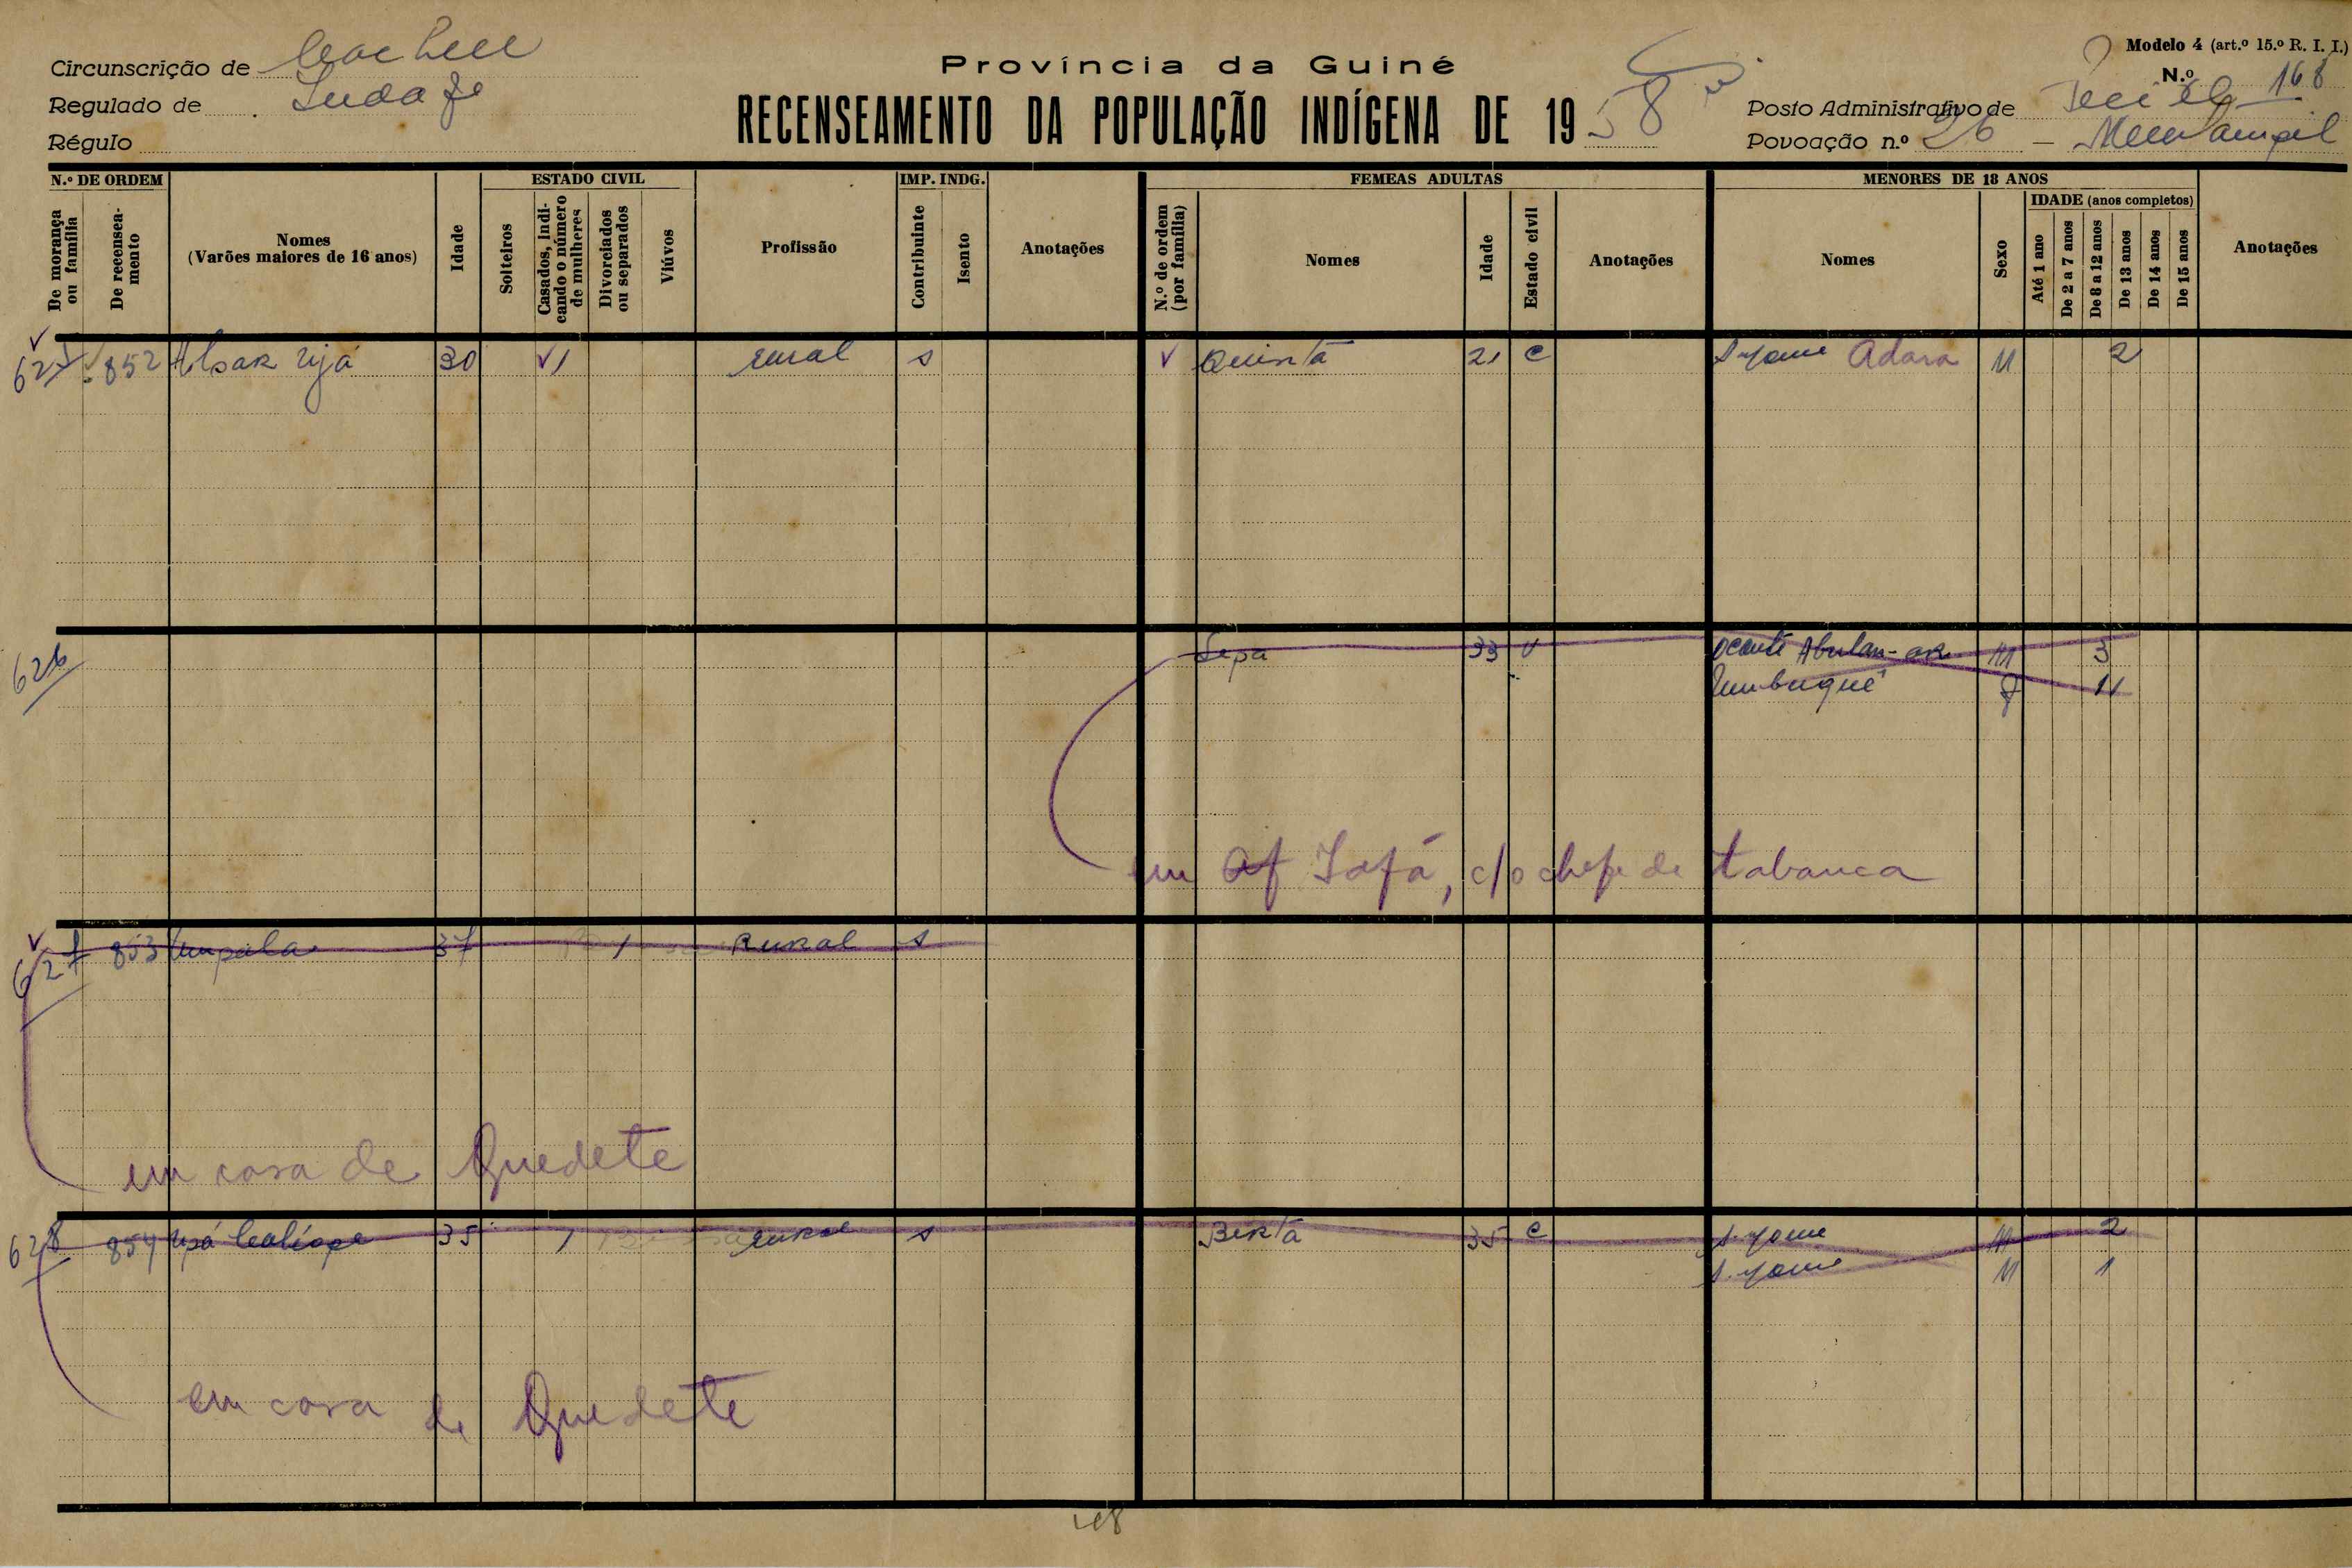 Modelo 4 (art.º 15.º R. I. I.)
Circunscrição de Cacheu
Província da Guiné
N.º 168
Regulado de
RECENSEAMENTO DA POPULAÇÃO INDÍGENA DE 19 58
Posto Administrativo de
Régulo
Povoação n.º 26 –
N.º DE ORDEM
ESTADO CIVIL
IMP. INDG.
FEMEAS ADULTAS
MENORES DE 18 ANOS
IDADE (anos completos)
De morança ou família
De recenseamento
Nomes
(Varões maiores de 16 anos)
Idade
Solteiros
Casados, indicando o número de mulheres
Divorciados ou separados
Viúvos
Profissão
Contribuinte
Isento
Anotações
N.º de ordem (por família)
Nomes
Idade
Estado civil
Anotações
Nomes
Sexo
Até 1 ano
De 2 a 7 anos
De 8 a 12 anos
De 13 anos
De 14 anos
De 15 anos
Anotações
852 30 1 rural s Quinta 21 C Adara M 2
626 Sepa 33 V M 3
11
em Af Iafá, c/o chefe de tabanca
627 853 Umpala 37 1 Rural s
em casa de Quedete
628 854 35 1 rural s Berta 35 C S. nome M 2
S. nome M 1
em casa de Quedete
168